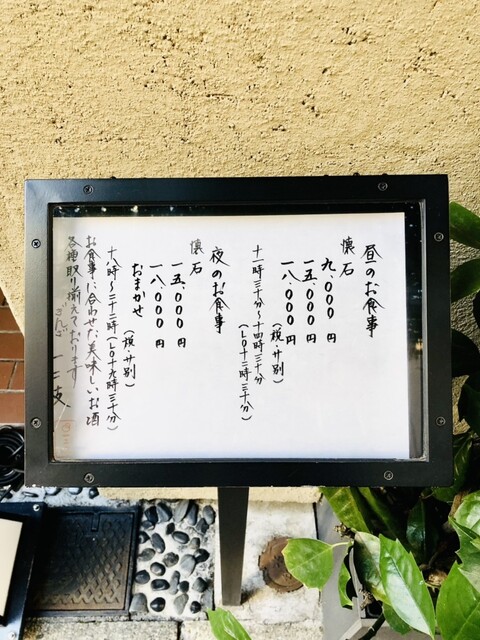 昼のお食事
懐石
九、000 円
一五、000 円
一八、000 円
(税・サ別)
十一時三十分〜十四時三十分
(LO十二時三十分)
夜のお食事
懐石
一五、000 円
一八、000 円
おまかせ
(税・サ別)
十八時〜二十二時(LO十九時三十分)
お食事に合わせた美味しいお酒
各種取り揃えております
ぎんざ 一二岐